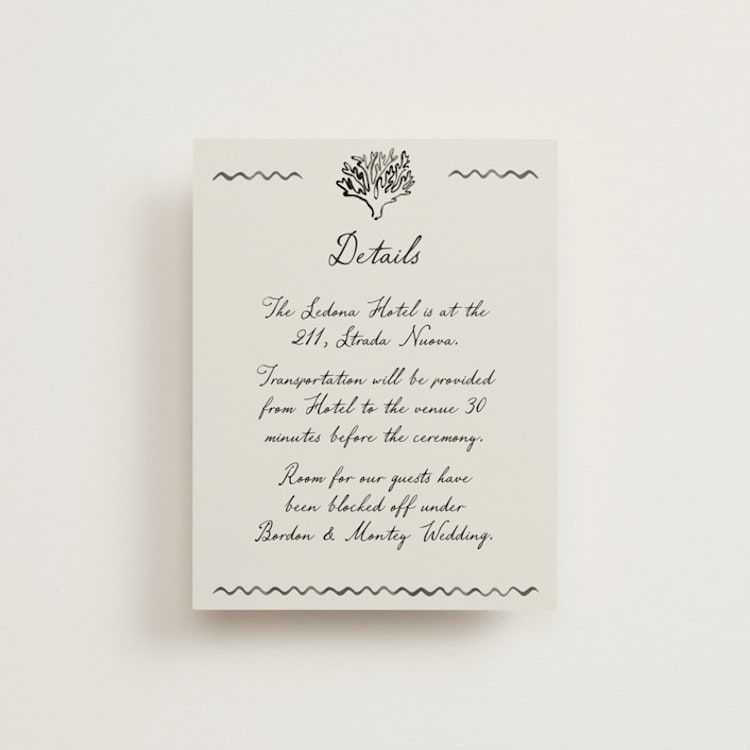 Details
The Ledona Hotel is at the
211, Strada Nuova.
Transportation will be provided
from Hotel to the venue 30
minutes before the ceremony.
Room for our guests have
been blocked off under
Bordon & Montey Wedding.